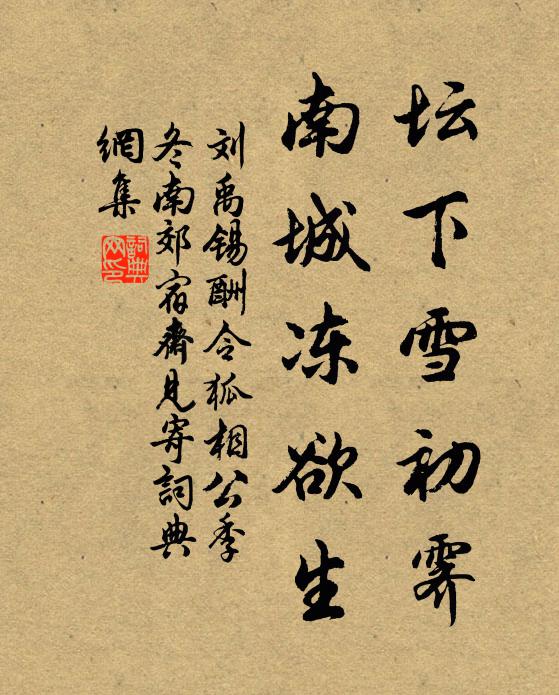 坛下雪初霁
南城冻欲生
刘禹锡酬令狐相公季
冬南郊宿斋见寄词典
網集
詞典网印